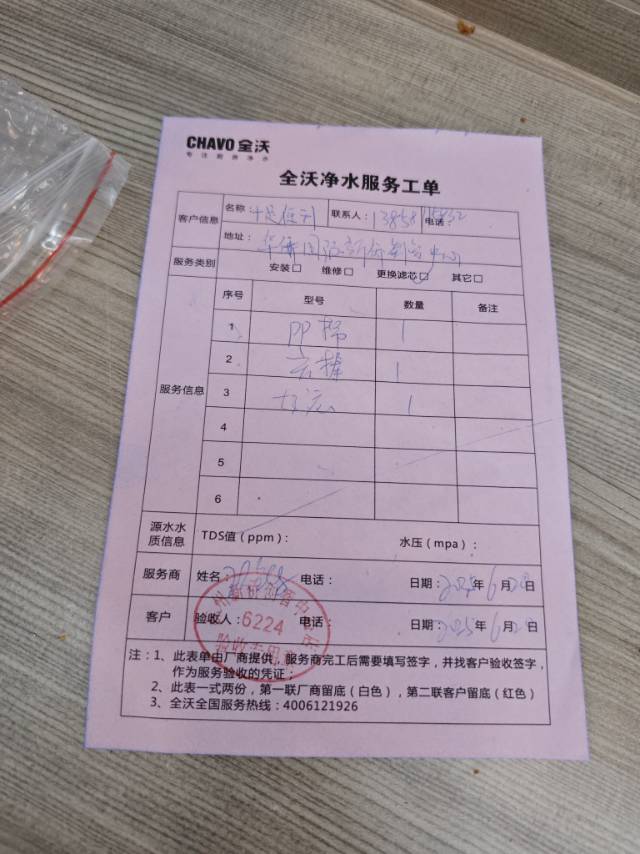 CHAVO 全沃
专注厨房净水
全沃净水服务工单
客户信息
名称: 联系人: 13858 电话:
地址:
服务类别 安装□ 维修□ 更换滤芯□ 其它□
服务信息
序号 型号 数量 备注
1 PP棉 1
2 1
3 1
4
5
6
源水水质信息 TDS值(ppm): 水压(mpa):
服务商 姓名 电话: 日期: 2025年6月20日
客户 验收人: 电话: 日期: 2025年6月20日
6224
验收专用章
注:1、此表单由厂商提供,服务商完工后需要填写签字,并找客户验收签字,
作为服务验收的凭证;
2、此表一式两份,第一联厂商留底(白色),第二联客户留底(红色)
3、全沃全国服务热线:4006121926